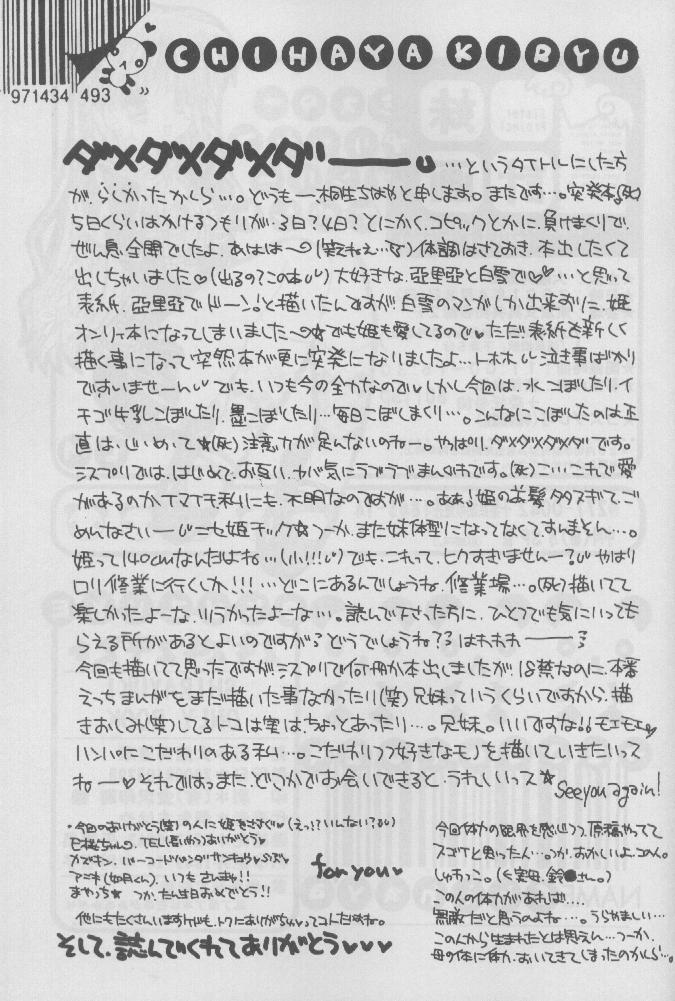 CHIHAYA KIRYU
971434 493
ダメダメダメダーーー。 …というタイトルにした方
が、らしかったかしら…。どうもー、桐生ちはやと申します。またです…。突発本(死)
5日くらいはかけるつもりが、3日?4日?とにかく、コピックとかに、負けまくりで、
ぜん息、全開でしたよ、あはは〜(笑えねえ…死)体調はさておき、本出したくて
出しちゃいました♡(出るの?この本)大好きな、亞里亞と白雪で♡♡…と思って
表紙、亞里亞でドーン!と描いたんですが、白雪のマンガしか出来ずに、姫
オンリー本になってしまいました〜☆でも姫も愛してるので♥ただ、表紙を新しく
描く事になって突然本が更に突発になりましたよ…トホホ 泣き事ばかり
ですいませーん でも、いつも今の全力なので♥しかし今回は、水こぼしたり、イ
チゴ牛乳こぼしたり、墨こぼしたり…毎日こぼしまくり…。こんなにこぼしたのは正
直は、じめて☆(死)注意力が足んないのねー。やっぱり、ダメダメダメダです。
シスプリでは、はじめて、お互い、ヤバ気にラブラブまんがです。(死)こ…これで愛
があるのか、イマイチ、私にも、不明なのですが…。ああ!姫のお髪タタスギて、ご
めんなさいー ニセ姫チック☆つーか、また妹体型になってなくてすんません…。
姫って140cmなんだよね…(小!!!)でも、これって、ヒクすぎいませんー? やはり
ロリ修業に行くしか!!!…どこにあるんでしょうね、修業場…。(死)描いてて
楽しかったよーな、ツラかったよーな…。読んで下さった方に、ひとつでも気にいっても
らえる所があるとよいのですが?どうでしょうね??はわわわーーー
今回も描いてて思ったですが、シスプリで何冊か本出しましたが、18禁なのに、本番
えっちまんがをまだ描いた事なかったり(笑)兄妹っていうくらいですから、描
きおしみ(笑)してるトコは実は、ちょっとあったり…。兄妹。いいですな!!モエモエ♥
ハンパにこだわりのある私…。こだわりつつ好きなモノを描いていきたいっス
ねー♥それではっまた、どこかでお会いできると、うれしいっス☆
See you again!
・今回のありがとう(笑)の人に姫をささぐ♥(えっ!?いらない?)
TEL(長いやつ)ありがとう♥
アニキ(如月くん)、いつも、さんきゅ!!
まやっち☆ つか、たん生日おめでとう!!
他にもたくさんいますケドも、トクにありがちゅってコトだすわね。
for you♥
そして、読んでくれてありがとう♥♥♥
今回体力の限界を感じつつ、原稿やってて
スゴイと思った人…つか、おかしいよ、この人。
しゅわっこ。(を実母、鈴●さん。)
この人の体力があれば....
無敵だと思うのよね…。うらやましい…
この人から生まれたとは思えん…つーか、
母の体に体力、おいてきてしまったのかしら…。